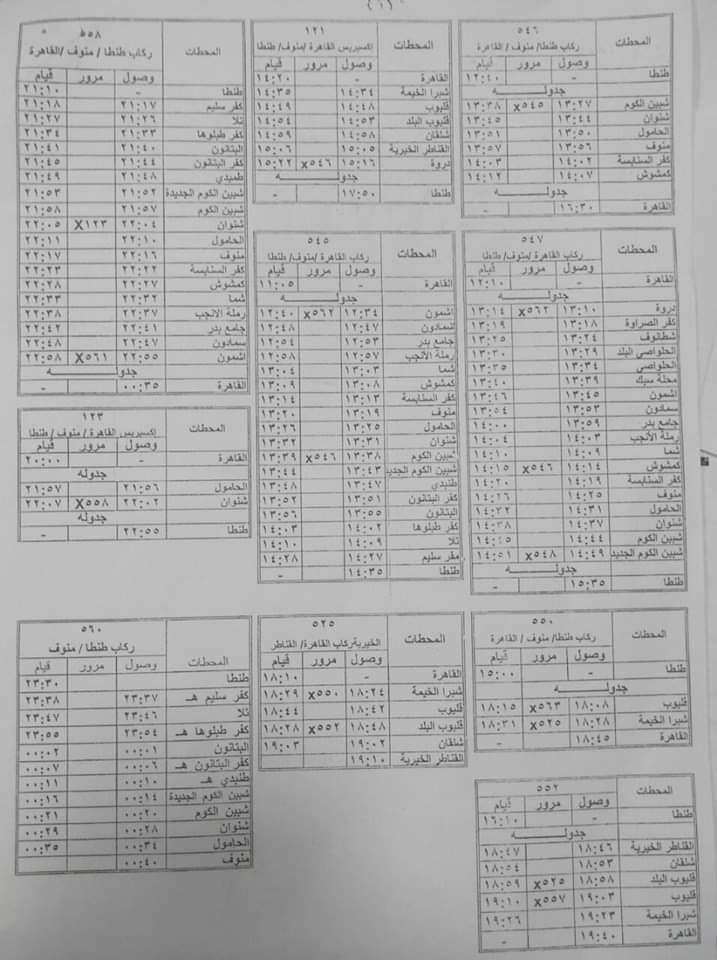 (٦)
٥٤٦
المحطات ركاب طنطا/ منوف / القاهرة
وصول مرور قيام
طنطا - ١٢:٤٠
جدولـــــه
شبين الكوم ١٣:٢٧ x٥٤٥ ١٣:٣٨
شنوان ١٣:٤٤ ١٣:٤٥
الحامول ١٣:٥٠ ١٣:٥١
منوف ١٣:٥٦ ١٣:٥٧
كفر السنابسة ١٤:٠٢ ١٤:٠٣
كمشوش ١٤:٠٧ ١٤:١٢
جدولـــــه
القاهرة ١٦:٣٠ -
١٢١
المحطات إكسبريس القاهرة /منوف/ طنطا
وصول مرور قيام
القاهرة - ١٤:٢٠
شبرا الخيمة ١٤:٣٤ ١٤:٣٥
قليوب ١٤:٤٨ ١٤:٤٩
قليوب البلد ١٤:٥٣ ١٤:٥٤
شلقان ١٤:٥٨ ١٤:٥٩
القناطر الخيرية ١٥:٠٥ ١٥:٠٦
دروة ١٥:١٦ x٥٤٦ ١٥:٢٢
جدولـــــه
طنطا ١٧:٥٠ -
٥٥٨
المحطات ركاب طنطا / منوف /القاهرة
وصول مرور قيام
طنطا - ٢١:١٠
كفر سليم ٢١:١٧ ٢١:١٨
تلا ٢١:٢٦ ٢١:٢٧
كفر طبلوها ٢١:٣٣ ٢١:٣٤
البتانون ٢١:٤٠ ٢١:٤١
كفر البتانون ٢١:٤٤ ٢١:٤٥
طمبدي ٢١:٤٨ ٢١:٤٩
شبين الكوم الجديدة ٢١:٥٢ ٢١:٥٣
شبين الكوم ٢١:٥٧ ٢١:٥٨
شنوان ٢٢:٠٤ X١٢٣ ٢٢:٠٥
الحامول ٢٢:١٠ ٢٢:١١
منوف ٢٢:١٦ ٢٢:١٧
كفر السنابسة ٢٢:٢٢ ٢٢:٢٣
كمشوش ٢٢:٢٧ ٢٢:٢٨
شما ٢٢:٣٢ ٢٢:٣٣
رملة الأنجب ٢٢:٣٧ ٢٢:٣٨
جامع بدر ٢٢:٤١ ٢٢:٤٢
سمادون ٢٢:٤٧ ٢٢:٤٨
أشمون ٢٢:٥٥ X٥٦١ ٢٢:٥٨
جدولـــــه
القاهرة ٠٠:٣٥ -
٥٤٧
المحطات ركاب القاهرة/ منوف/ طنطا
وصول مرور قيام
القاهرة - ١٢:١٠
جدولـــــه
دروة ١٣:١٠ x٥٦٢ ١٣:١٤
كفر الصراوة ١٣:١٨ ١٣:١٩
شطانوف ١٣:٢٤ ١٣:٢٥
الحلواصي البلد ١٣:٢٩ ١٣:٣٠
الحلواصي ١٣:٣٤ ١٣:٣٥
محلة سبك ١٣:٣٩ ١٣:٤٠
أشمون ١٣:٤٥ ١٣:٤٦
سمادون ١٣:٥٣ ١٣:٥٤
جامع بدر ١٣:٥٩ ١٤:٠٠
رملة الأنجب ١٤:٠٣ ١٤:٠٤
شما ١٤:٠٩ ١٤:١٠
كمشوش ١٤:١٤ x٥٤٦ ١٤:١٥
كفر السنابسة ١٤:١٩ ١٤:٢٠
منوف ١٤:٢٥ ١٤:٢٦
الحامول ١٤:٣١ ١٤:٣٢
شنوان ١٤:٣٧ ١٤:٣٨
شبين الكوم ١٤:٤٤ ١٤:٤٥
شبين الكوم الجديد ١٤:٤٩ x٥٤٨ ١٤:٥١
جدولـــــه
طنطا ١٥:٣٥ -
٥٤٥
المحطات ركاب القاهرة /منوف/ طنطا
وصول مرور قيام
القاهرة - ١١:٠٥
جدولـــــه
أشمون ١٢:٣٤ x٥٦٢ ١٢:٤٠
سمادون ١٢:٤٧ ١٢:٤٨
جامع بدر ١٢:٥٣ ١٢:٥٤
رملة الأنجب ١٢:٥٧ ١٢:٥٨
شما ١٣:٠٣ ١٣:٠٤
كمشوش ١٣:٠٨ ١٣:٠٩
كفر السنابسة ١٣:١٣ ١٣:١٤
منوف ١٣:١٩ ١٣:٢٠
الحامول ١٣:٢٥ ١٣:٢٦
شنوان ١٣:٣١ ١٣:٣٢
شبين الكوم ١٣:٣٨ x٥٤٦ ١٣:٣٩
شبين الكوم الجديد ١٣:٤٣ ١٣:٤٤
طنبدي ١٣:٤٧ ١٣:٤٨
كفر البتانون ١٣:٥١ ١٣:٥٢
البتانون ١٣:٥٥ ١٣:٥٦
كفر طبلوها ١٤:٠٢ ١٤:٠٣
تلا ١٤:٠٩ ١٤:١٠
مفر سليم ١٤:٢٧ ١٤:٢٨
طنطا ١٤:٣٥ -
١٢٣
المحطات إكسبريس القاهرة / منوف / طنطا
وصول مرور قيام
القاهرة - ٢٠:٠٠
جدوله
الحامول ٢١:٥٦ ٢١:٥٧
شنوان ٢٢:٠٢ X٥٥٨ ٢٢:٠٧
جدوله
طنطا ٢٢:٥٥ -
٥٥٠
المحطات ركاب طنطا/ منوف / القاهرة
وصول مرور قيام
طنطا - ١٥:٠٠
جدولـــــه
قليوب ١٨:٠٨ x٥٦٣ ١٨:١٥
شبرا الخيمة ١٨:٢٨ x٥٢٥ ١٨:٣١
القاهرة ١٨:٤٥ -
٥٢٥
المحطات الخيريةركاب القاهرة/ القناطر
وصول مرور قيام
القاهرة ١٨:١٠
شبرا الخيمة ١٨:٢٤ x٥٥٠ ١٨:٢٩
قليوب ١٨:٤٢ ١٨:٤٤
قليوب البلد ١٨:٤٨ x٥٥٢ ١٨:٢٨
شلقان ١٩:٠٢ ١٩:٠٣
القناطر الخيرية ١٩:١٠
٥٦٠
المحطات ركاب طنطا / منوف
وصول مرور قيام
طنطا ٢٣:٣٠
كفر سليم هـ ٢٣:٣٧ ٢٣:٣٨
تلا ٢٣:٤٦ ٢٣:٤٧
كفر طبلوها هـ ٢٣:٥٤ ٢٣:٥٥
البتانون ٠٠:٠١ ٠٠:٠٢
كفر البتانون هـ ٠٠:٠٦ ٠٠:٠٧
طنبدي هـ ٠٠:١٠ ٠٠:١١
شبين الكوم الجديدة ٠٠:١٤ ٠٠:١٦
شبين الكوم ٠٠:٢٠ ٠٠:٢١
شنوان ٠٠:٢٨ ٠٠:٢٩
الحامول ٠٠:٣٤ ٠٠:٣٥
منوف ٠٠:٤٠
٥٥٢
المحطات وصول مرور قيام
طنطا - ١٦:١٠
جدولـــــه
القناطر الخيرية ١٨:٤٦ ١٨:٤٧
شلقان ١٨:٥٣ ١٨:٥٤
قليوب البلد ١٨:٥٨ x٥٢٥ ١٨:٥٩
قليوب ١٩:٠٣ x٥٥٧ ١٩:١٠
شبرا الخيمة ١٩:٢٣ ١٩:٢٦
القاهرة ١٩:٤٠ -